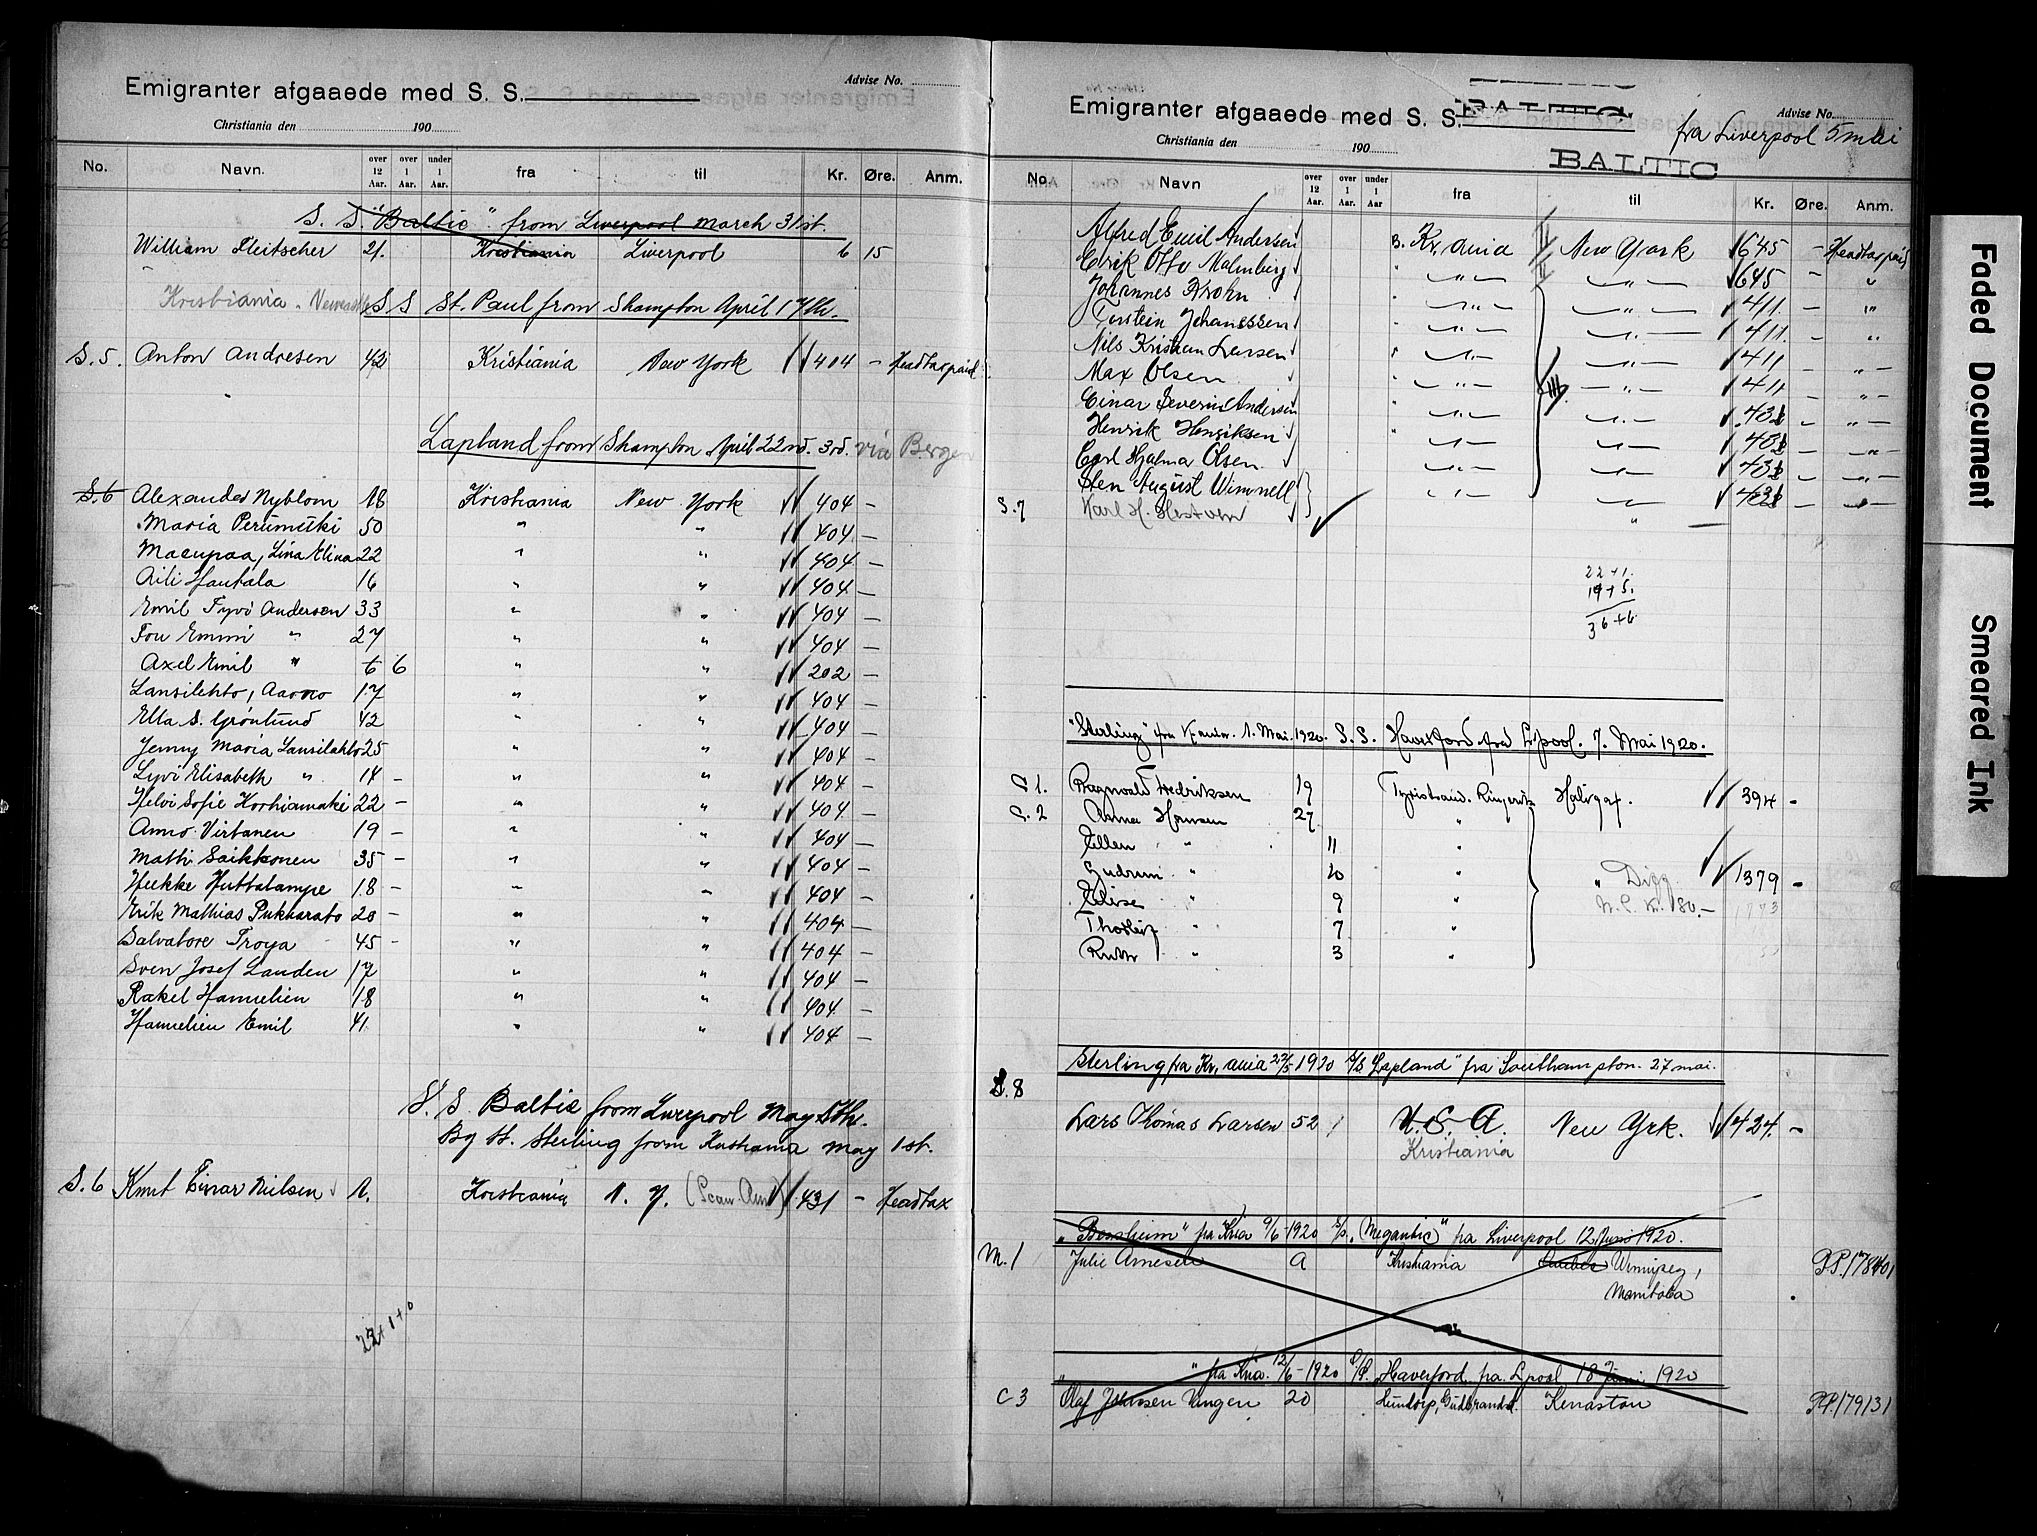 Advise No.
Emigranter afgaaede med S. S.
Christiania den 190
No. Navn. over 12 Aar. over 1 Aar. under 1 Aar. fra til Kr. Øre. Anm.
S. S. "Baltic" from Liverpool March 31st.
William Fleitscher 21. Kristiania Liverpool 6 15
Kristiania - SS St. Paul from Shampton April 17th.
S. 5. Anton Andresen 42 Kristiania New York 404 - Headtax paid
Lapland from Shampton April 22nd. 3rd. via Bergen
S. 6 Alexander Nyblom 18 Kristiania New York 404 -
Maria Perumetki 50 " " 404 -
Maenpaa, Lina Elina 22 " " 404 -
Aili Hautala 16 " " 404 -
Emil Tyvi Andersen 33 " " 404 -
Fru Emmi " 27 " " 404 -
Axel Emil " 6 6 " " 202 -
Lansilehto, Aarno 17 " " 404 -
Ella S. Gröntund 42 " " 404 -
Jenny Maria Lansilahto 25 " " 404 -
Lyvi Elisabeth " 14 - " " 404 -
Helvi Sofie Korhiamaki 22 - " " 404 -
Anno Virtanen 19 - " " 404 -
Matti Saikkonen 35 - " " 404 -
Heikke Huttalampe 18 - " " 404 -
Erik Mathias Pukkarato 20 - " " 404 -
Salvatore Troya 45 - " " 404 -
Sven Josef Landen 17 " " 404 -
Rakel Hamelien 18 " " 404 -
Hamelien Emil 41 " " 404 -
S. S. Baltic from Liverpool May 5th.
By St. Sterling from Kristiania May 1st.
S. 6 Knut Einar Nielsen 1. Kristiania N. Y. (Scan. Am) 431 - Headtax
22+1+0
Advise No.
Emigranter afgaaede med S. S. BALTIC fra Liverpool 5 mai
Christiania den 190
BALTIC
No. Navn over 12 Aar. over 1 Aar. under 1 Aar fra til Kr. Øre. Anm.
Alfred Emil Andersen B. Kr.ania II New York 645 - Headtax paid
Erik Otto Malmberg " " II " 645 - "
Johannes Krohn " " " 411. - "
Torstein Johanssen " " " 411. - "
Nils Kristian Larsen " " " 411 - "
Max Olsen " " III " 411 - "
Einar Severin Andersen " " 431 - "
Henrik Henriksen " " " 431 - "
Carl Hjalmar Olsen " " 431 - "
Sten August Wimnell " " 431 - "
S. 7 Karl H. Hestven " -
22+1.
14+5.
36+6.
"Sterling" fra Kr.ania. 1. Mai. 1920. S. S. Haverford fra Lpool. 7. Mai 1920.
C 1. Ragnvald Fredriksen 19 Tyristrand. Ringerike Halifax. 394 -
C. 2 Anna Hansen 27 "
Ellen " 11 "
Gudrun " 10 " " Digg 1379 -
Elise " 9 "
Thorleif " 7 "
Ruth " 3 "
Sterling fra Kr.ania 22/5 1920 S/S "Lapland" fra Southampton. 27 mai.
S. 8
Lars Thomas Larsen 52 U. S. A. New Yrk. 424. -
Kristiania
"Bessheim" fra Kria 9/6-1920 S/S. "Megantic" fra Liverpool 12 Juni 1920.
M. 1 Julie Arnesen a Kristiania Quebec Winnipeg, PP. 178401
Manitoba
" " fra Kria. 12/6-1920 S/S. Haverford fra Lpool 18 Juni 1920
C 3 Olaf Johansen Vangen 20 Hundorp, Gudbrandsd. Kenaston PP. 179131
Faded Document
Smeared Ink